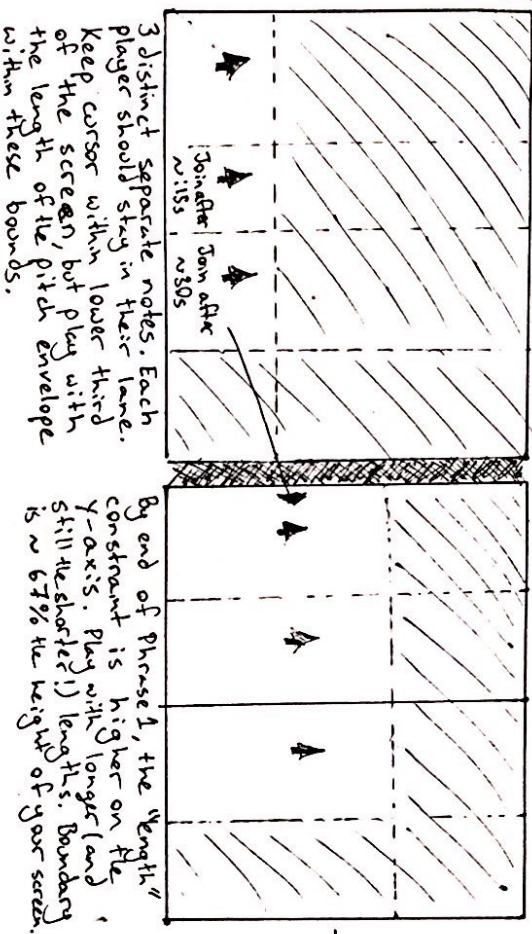 Join after
~:15s
Join after
~:30s
3 distinct separate notes. Each
player should stay in their lane.
Keep cursor within lower third
of the screen, but play with
the length of the pitch envelope
within these bounds.
By end of Phrase 1, the "length"
constraint is higher on the
y-axis. Play with longer (and
still the shorter!) lengths. Boundary
is ~ 67% the height of your screen.